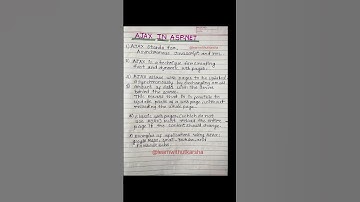 AJAX IN ASP.NET
1) AJAX stands for
Asynchronous Javascript and XML.
2) AJAX is a technique for creating
fast and dynamic web pages.
3) AJAX allows web pages to be updated
asynchronously by exchanging small
amount of data with the server
behind the scenes.
This means that it is possible to
update parts of a web page, without
reloading the whole page.
4) Classic web pages, (which do not
use AJAX) must reload the entire
page if the content should change.
5) Examples of applications using AJAX:
google Maps, gmail, Youtube, and
Facebook tabs.
@learnwithutkarsha